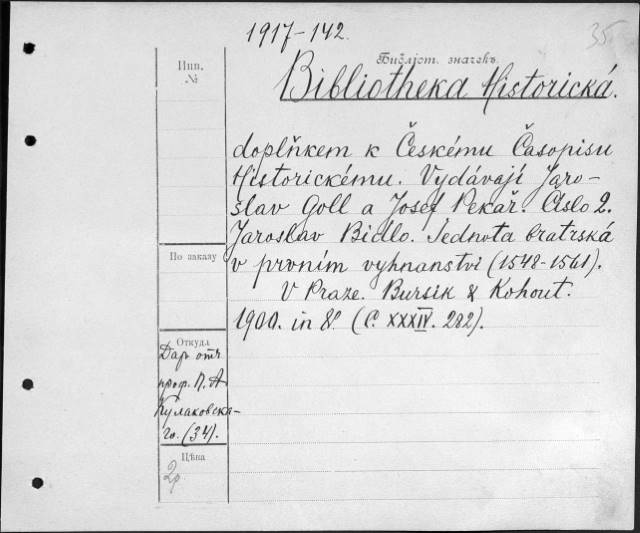 1917-142.
35
Инв.
№
Библіот. значекъ.
Bibliotheka Historická.
doplňkem k Českému Časopisu
Historickému. Vydávají Jaro-
slav Goll a Josef Pekař. Číslo 2.
Jaroslav Bidlo. Jednota bratrská
v prvním vyhnanství (1548-1561).
V Praze. Bursík & Kohout.
1900. in 8º. (C. XXXIV. 282).
По заказу
Откуда
Даръ отъ
проф. П. А
Кулаковска-
го. (34).
Цѣна
2р